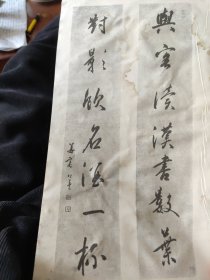 與客讀漢書數葉
對影飲名酒一杯